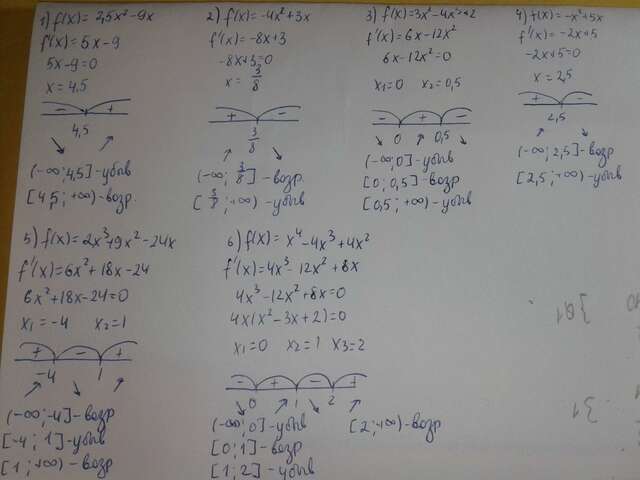 1) f(x) = 2,5x² - 9x
f'(x) = 5x - 9
5x - 9 = 0
x = 4,5
- +
4,5
(-∞; 4,5] - убыв
[4,5; +∞) - возр.
2) f(x) = -4x² + 3x
f'(x) = -8x + 3
-8x + 3 = 0
x = 3/8
+ -
3/8
(-∞; 3/8] - возр.
[3/8; +∞) - убыв
3) f(x) = 3x² - 4x³ + 2
f'(x) = 6x - 12x²
6x - 12x² = 0
x₁ = 0 x₂ = 0,5
- + -
0 0,5
(-∞; 0] - убыв
[0; 0,5] - возр.
[0,5; +∞) - убыв
4) f(x) = -x² + 5x
f'(x) = -2x + 5
-2x + 5 = 0
x = 2,5
+ -
2,5
(-∞; 2,5] - возр
[2,5; +∞) - убыв
5) f(x) = 2x³ + 9x² - 24x
f'(x) = 6x² + 18x - 24
6x² + 18x - 24 = 0
x₁ = -4 x₂ = 1
+ - +
-4 1
(-∞; -4] - возр
[-4; 1] - убыв
[1; +∞) - возр
6) f(x) = x⁴ - 4x³ + 4x²
f'(x) = 4x³ - 12x² + 8x
4x³ - 12x² + 8x = 0
4x(x² - 3x + 2) = 0
x₁ = 0 x₂ = 1 x₃ = 2
- + - +
0 1 2
(-∞; 0] - убыв [2; +∞) - возр
[0; 1] - возр
[1; 2] - убыв